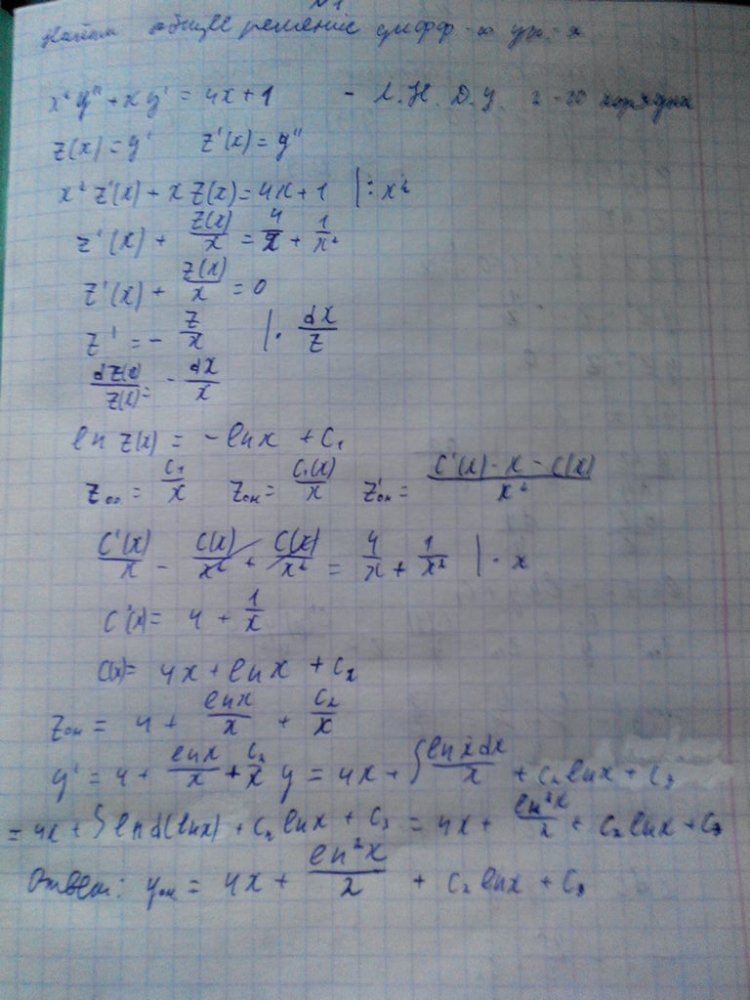 №1
Найти общее решение дифф-го ур.-я
x² y'' + x y' = 4x + 1 - Л.Н.Д.У. 2-го порядка
z(x) = y' z'(x) = y''
x² z'(x) + x z(x) = 4x + 1 | : x²
z'(x) + z(x)/x = 4/x + 1/x²
z'(x) + z(x)/x = 0
z' = - z/x | · dx/z
dz(x)/z(x) = - dx/x
ln z(x) = -ln x + C₁
zоо = C₁/x zон = C₁(x)/x z'он = (C'(x)·x - C(x))/x²
C'(x)/x - C(x)/x² + C(x)/x² = 4/x + 1/x² | · x
C'(x) = 4 + 1/x
C(x) = 4x + ln x + C₂
zон = 4 + ln x/x + C₂/x
y' = 4 + ln x/x + C₂/x y = 4x + ∫ ln x dx/x + C₂ ln x + C₃
= 4x + ∫ ln d(ln x) + C₂ ln x + C₃ = 4x + ln²x/2 + C₂ ln x + C₃
Ответ: yон = 4x + ln²x/2 + C₂ ln x + C₃